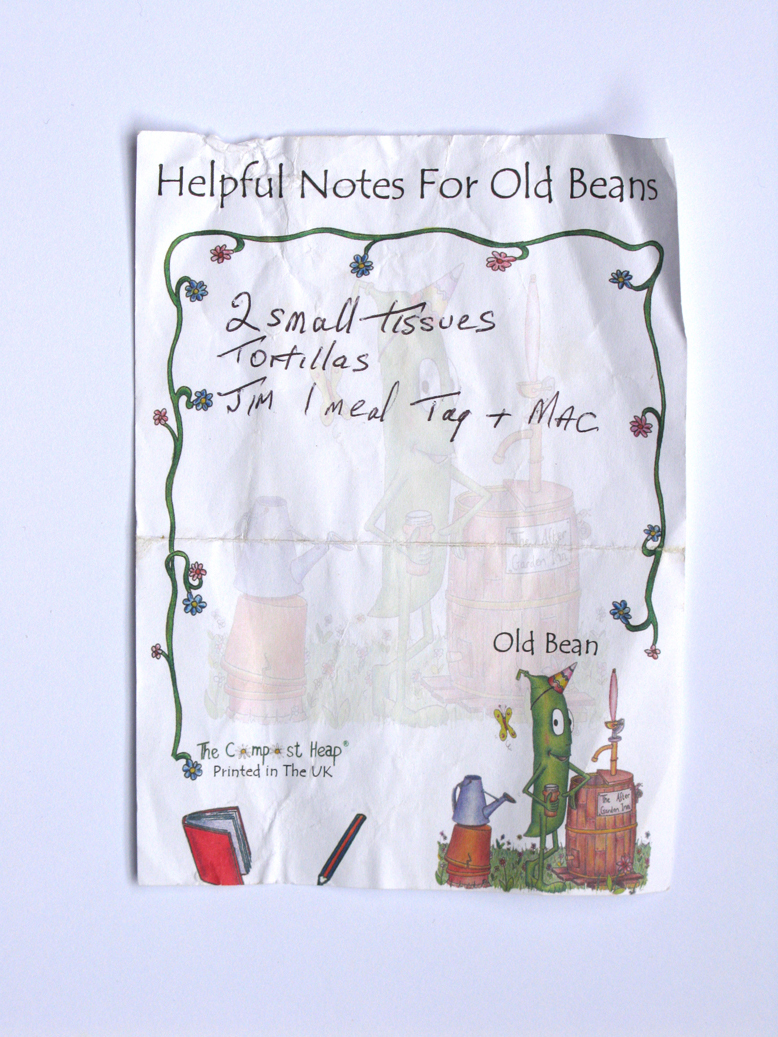 Helpful Notes For Old Beans
2 small tissues
Tortillas
JIM 1 meal Tag + MAC
Old Bean
The Compost Heap®
Printed in The UK
The After
Garden Inn